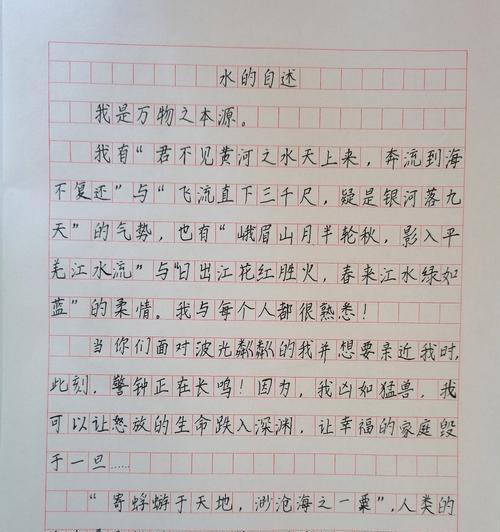 水的自述
我是万物之本源。
我有“君不见黄河之水天上来，奔流到海
不复还”与“飞流直下三千尺，疑是银河落九
天”的气势，也有“峨眉山月半轮秋，影入平
羌江水流”与“日出江花红胜火，春来江水绿如
蓝”的柔情。我与每个人都很熟悉！
当你们面对波光粼粼的我并想要亲近我时，
此刻，警钟正在长鸣！因为，我凶如猛兽，我
可以让怒放的生命跌入深渊，让幸福的家庭毁
于一旦……
“寄蜉蝣于天地，渺沧海之一粟”，人类的